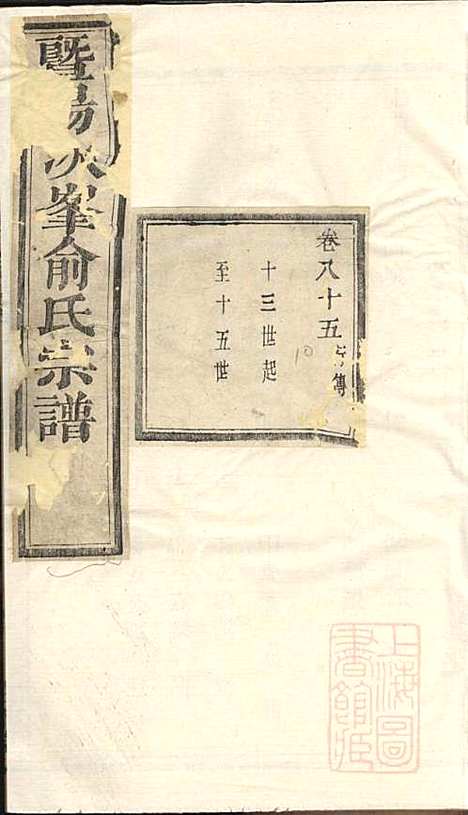 暨陽次峯俞氏宗譜
卷八十五 行傳
十三世起
至十五世
10
上海圖書館臧